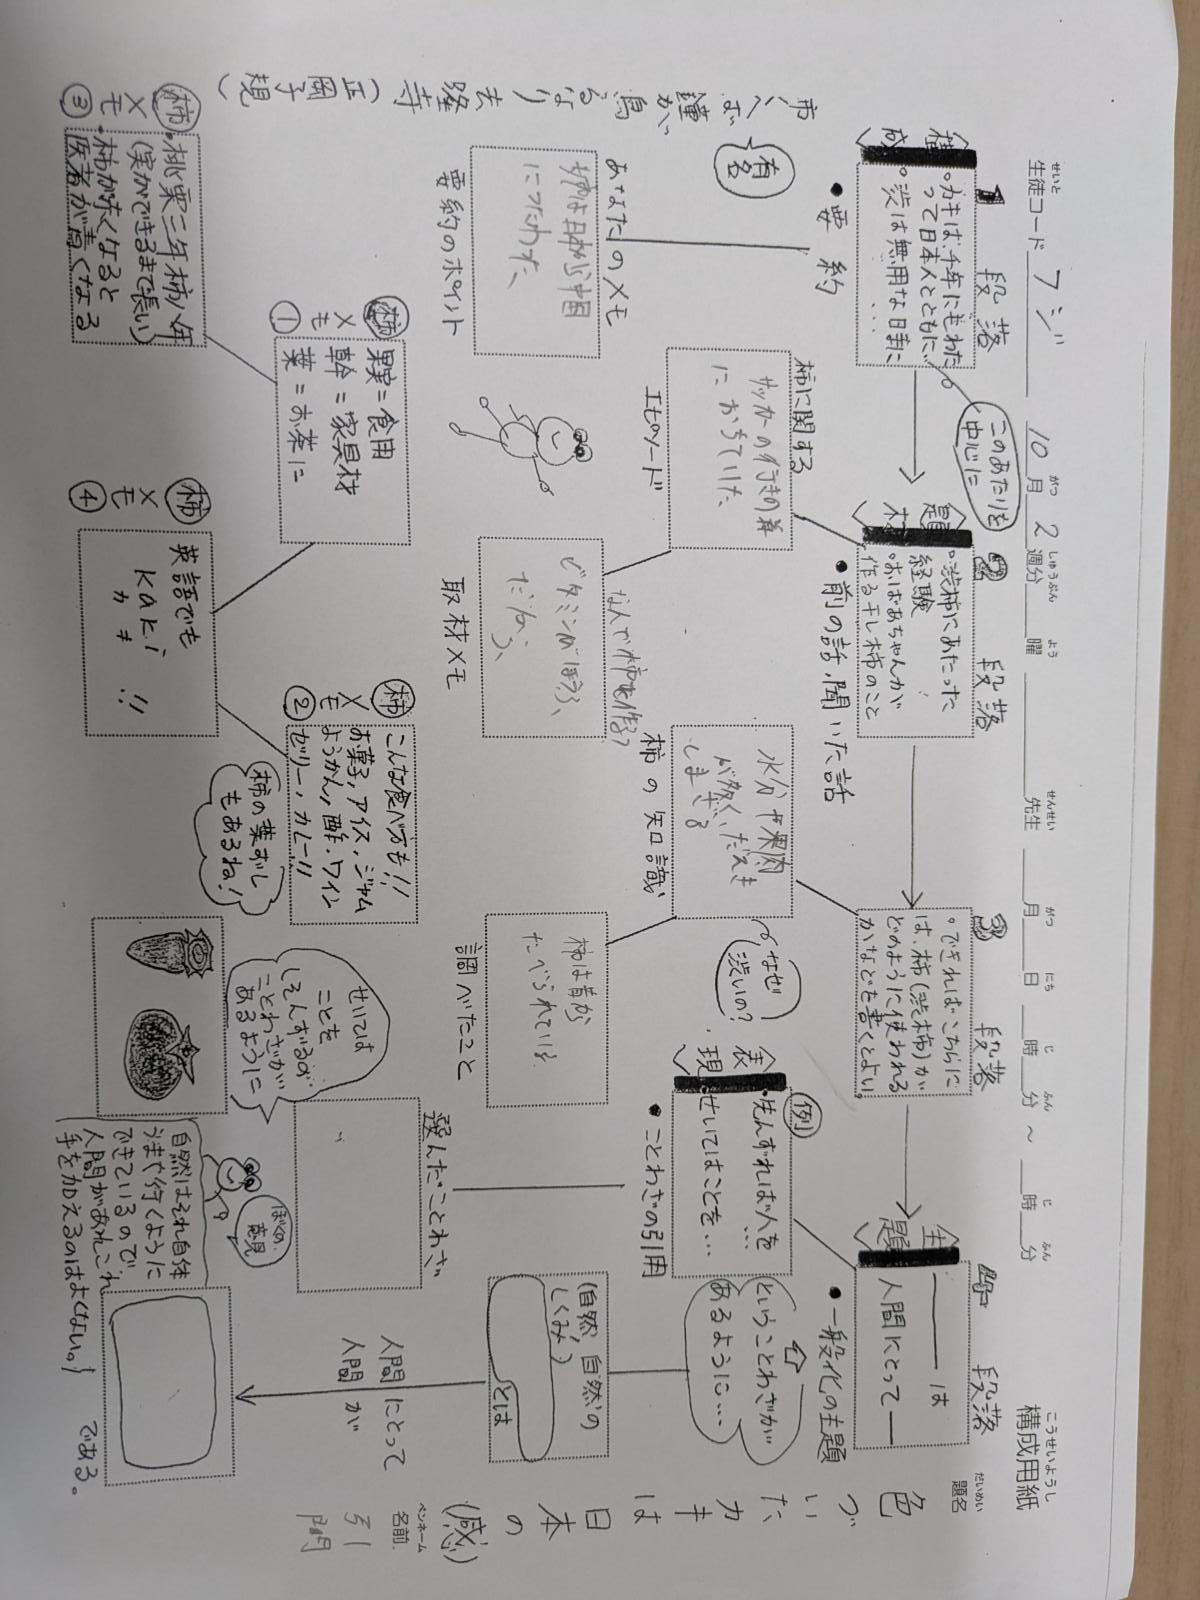 こうせいようし
構成用紙
せいと
生徒コード フジ
10月2週分 曜 先生 月 日 時 分 ～ 時 分
がつ しゅうぶん よう せんせい がつ にち じ ふん じ ふん
だいめい
題名
色づいたカキは日本の(感)
ペンネーム
名前
引間
1 段落
構成
・カキは、千年にもわた
って日本人とともに…
・渋は無用な日時に
・・・
このあたりを
中心に
●要約
有名
あなたのメモ
柿は日本から中国
につたわった、
要約のポイント
2 段落
題材
・渋柿にあたった
経験
・おばあちゃんが
作る干し柿のこと
●前の話、聞いた話
柿に関する
サッカーの行きの前
におちていた
エピソード
なんで柿を作る?
ビタミンがほうふ、
だから、
取材メモ
3 段落
・できればこちらに
は、柿(渋柿)が
どのように使われる
かなどを書くとよい。
なぜ
渋いの?
水分や果肉
が多く、だえき
しまざる
柿の知識
柿は昔から
たべられている
調べたこと
4 段落
主題
――は
人間にとって――
●一般化の主題
表現
例
・先んずれば人を…
・せいてはことを…
●ことわざの引用
選んだことわざ
ということわざが
あるように…
(自然、自然の
しくみ)
とは
人間にとって
人間が
である。
ぼくの
意見
自然はそれ自体
うまや行くように
できているので、
人間があれこれ
手を加えるのはよくない。
せいては
ことを
しそんずるの
ことわざが
あるように
市へば鐘が鳥るなり去隆寺(正岡子規)
柿メモ①
果実=食用
幹=家具材
葉=お茶に
柿メモ②
こんな食べ方も!!
お菓子、アイス、ジャム
ようかん、酢、ワイン
ゼリー、カレー!!
柿の葉ずし
もあるね!
柿メモ③
・桃栗三年柿八年
(実ができるまで長い)
・柿が赤くなると
医者が青くなる
柿メモ④
英語でも
kaki
カキ!!